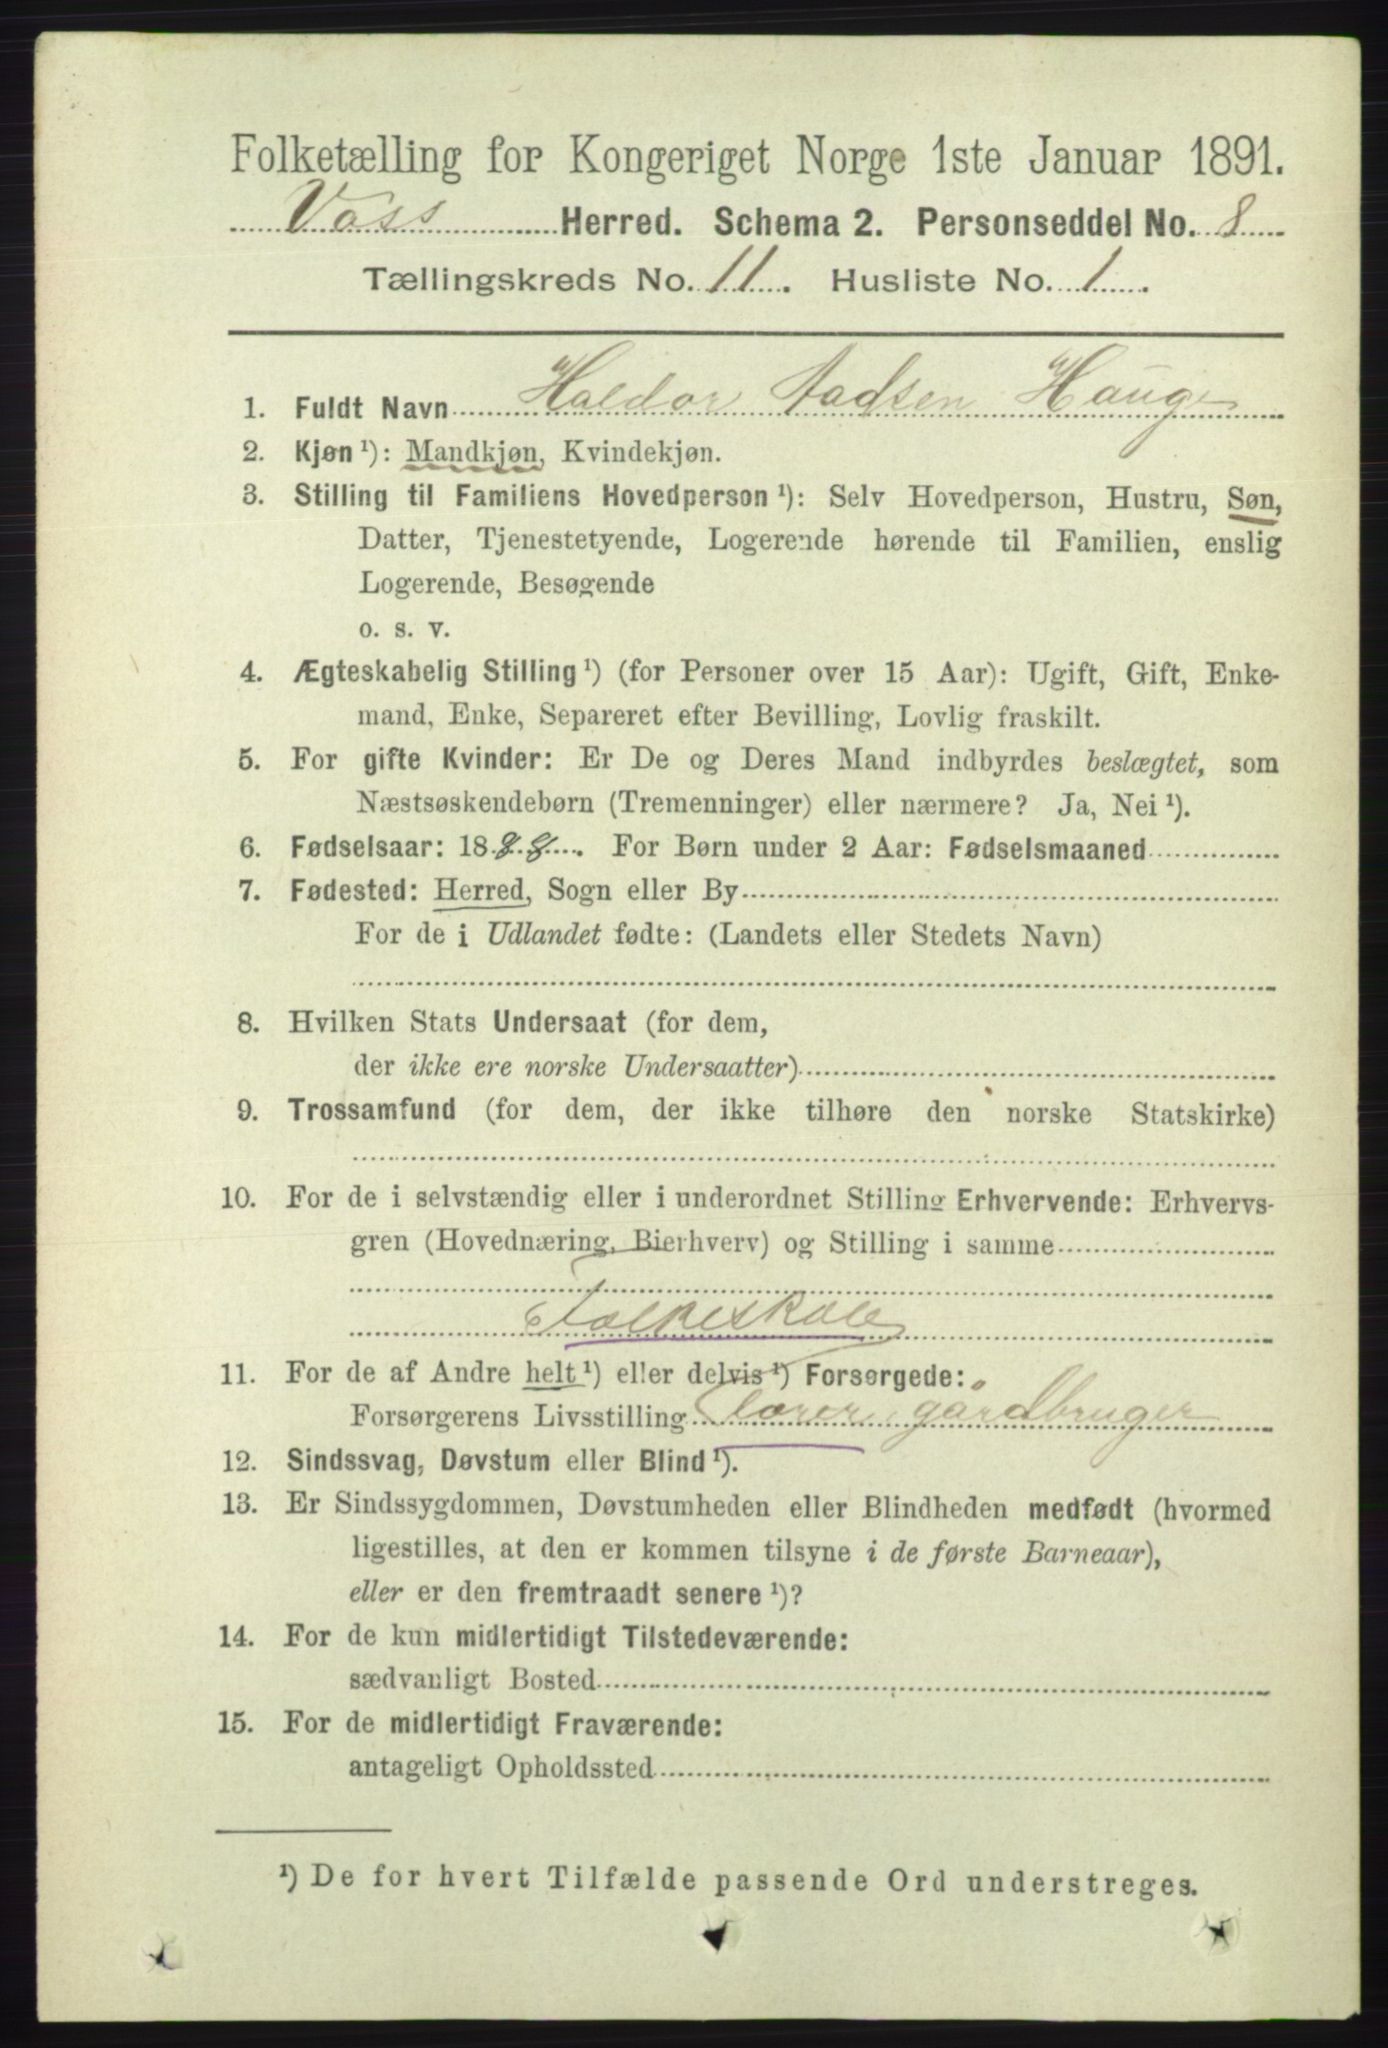 Folketælling for Kongeriget Norge 1ste Januar 1891.
Voss Herred. Schema 2. Personseddel No. 8
Tællingskreds No. 11. Husliste No. 1.
1. Fuldt Navn Haldor Aadsen Hauge
2. Kjøn ¹): Mandkjøn, Kvindekjøn.
3. Stilling til Familiens Hovedperson ¹): Selv Hovedperson, Hustru, Søn,
Datter, Tjenestetyende, Logerende hørende til Familien, enslig
Logerende, Besøgende
o. s. v.
4. Ægteskabelig Stilling ¹) (for Personer over 15 Aar): Ugift, Gift, Enke-
mand, Enke, Separeret efter Bevilling, Lovlig fraskilt.
5. For gifte Kvinder: Er De og Deres Mand indbyrdes beslægtet, som
Næstsøskendebørn (Tremenninger) eller nærmere? Ja, Nei ¹).
6. Fødselsaar: 1888. For Børn under 2 Aar: Fødselsmaaned
7. Fødested: Herred, Sogn eller By
For de i Udlandet fødte: (Landets eller Stedets Navn)
8. Hvilken Stats Undersaat (for dem,
der ikke ere norske Undersaatter)
9. Trossamfund (for dem, der ikke tilhøre den norske Statskirke)
10. For de i selvstændig eller i underordnet Stilling Erhvervende: Erhvervs-
gren (Hovednæring, Bierhverv) og Stilling i samme
Folkeskole
11. For de af Andre helt ¹) eller delvis ¹) Forsørgede:
Forsørgerens Livsstilling Lærer, gårdbruger
12. Sindssvag, Døvstum eller Blind ¹).
13. Er Sindssygdommen, Døvstumheden eller Blindheden medfødt (hvormed
ligestilles, at den er kommen tilsyne i de første Barneaar),
eller er den fremtraadt senere ¹)?
14. For de kun midlertidigt Tilstedeværende:
sædvanligt Bosted
15. For de midlertidigt Fraværende:
antageligt Opholdssted
¹) De for hvert Tilfælde passende Ord understreges.